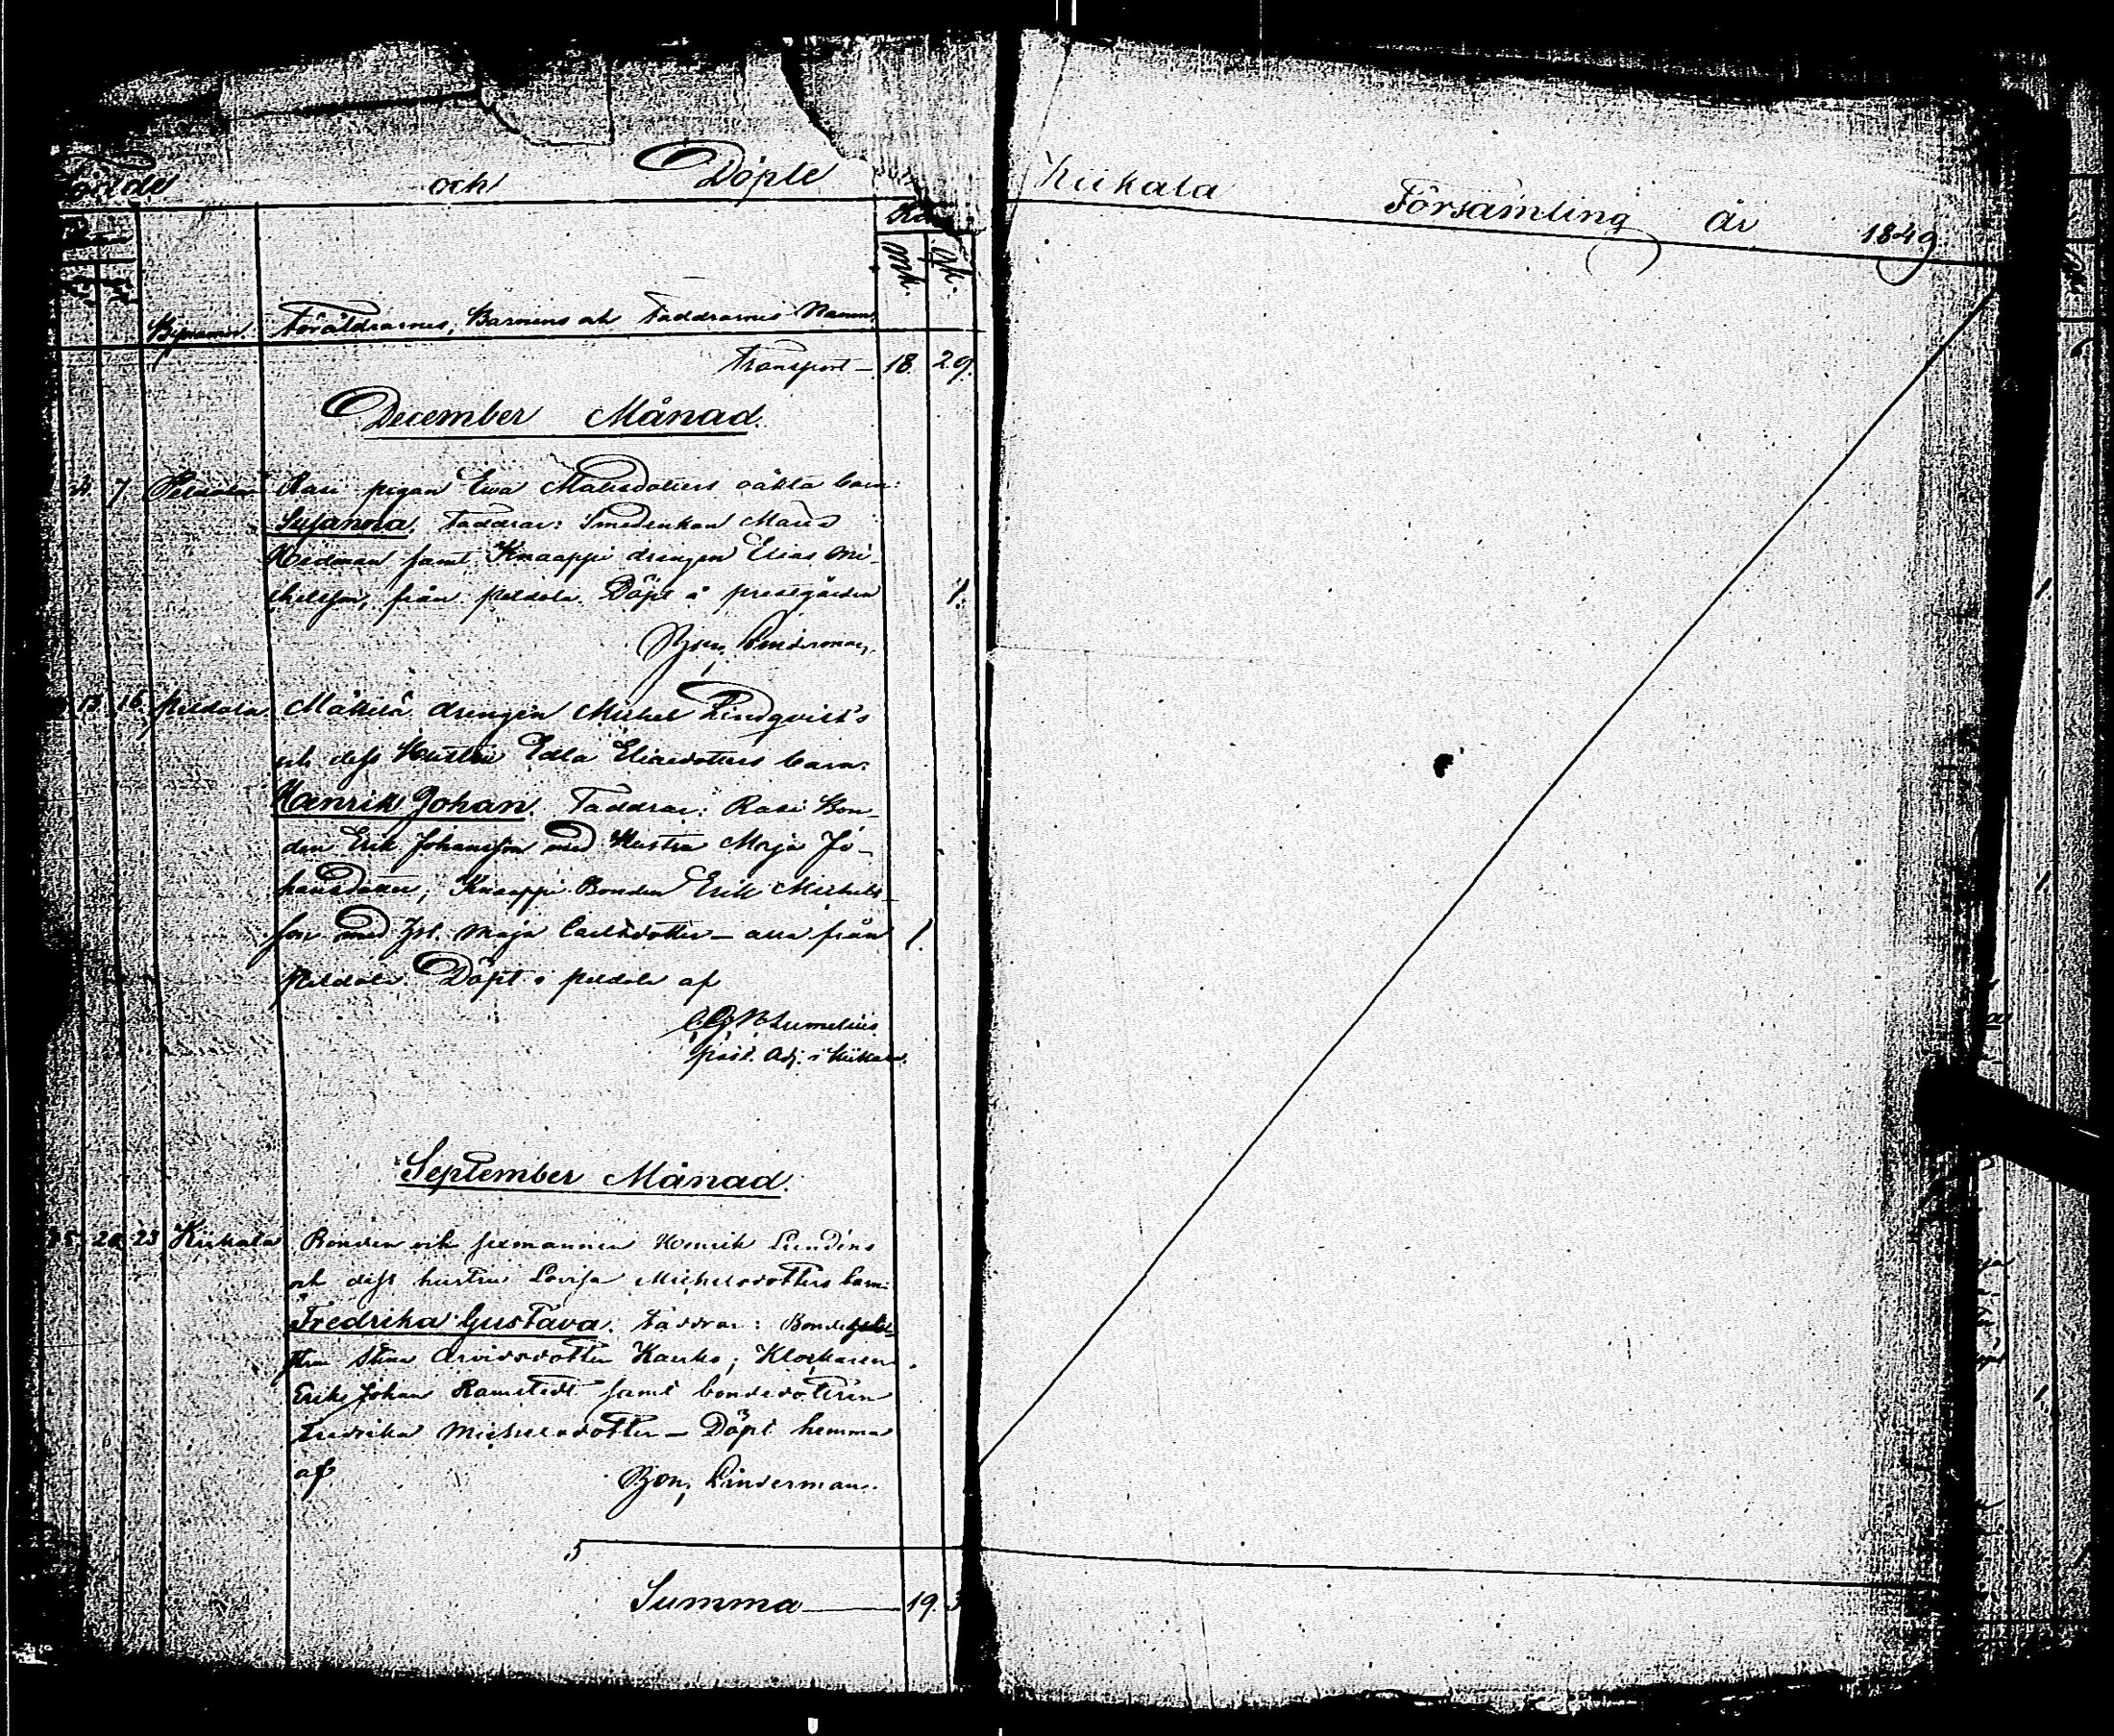 och Döpte
Kiikala Församling år 1849
Kön
mk. qk.
Bynamn. Föräldrarnes, Barnens och Faddrarnes Namn.
Transport — 18. 29.
December Månad.
7 Peldola Rasi pigan Ewa Matsdotters oäkta barn:
Susanna. Faddrar: Smedenkan Maria
Hedman samt Knaappi drengen Elias Mi-
chelsson, från Peldola. Döpt å prestgården 1.
Bjon, Linderman.
13. 16. Peldola Mäkilä drengen Michel Lindqvist's
och dess Hustru Edla Eliaedotters barn:
Henrik Johan. Faddrar: Rasi Bon-
den Erik Johansson med Hustru Maja Jo-
hansdotter; Knaappi Bonden Erik Michels-
son med Hst. Maja Carlsdotter — alla från 1.
Peldola. Döpt i Peldola af
Sumelius
past. Adj. i Kiikala.
September Månad.
20. 23 Kiikala Bonden och sexmannen Henrik Lundéns
och dess hustru Lovisa Michelsdotters barn:
Fredrika Gustava. Faddrar: Bonde
Stina Arvidsdotter Kauko; Klockaren
Erik Johan Ramstedt samt bondedottren
Fredrika Michelsdotter — Döpt hemma
af Bjon, Linderman.
Summa — 19. 3